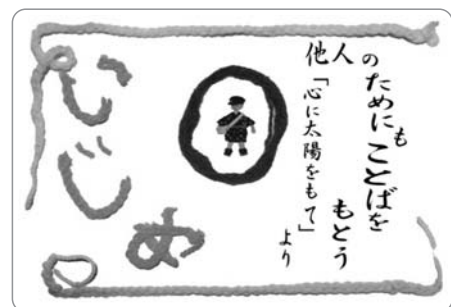 他人のためにもことばを
もとう
「心に太陽をもて」
より
いじめ